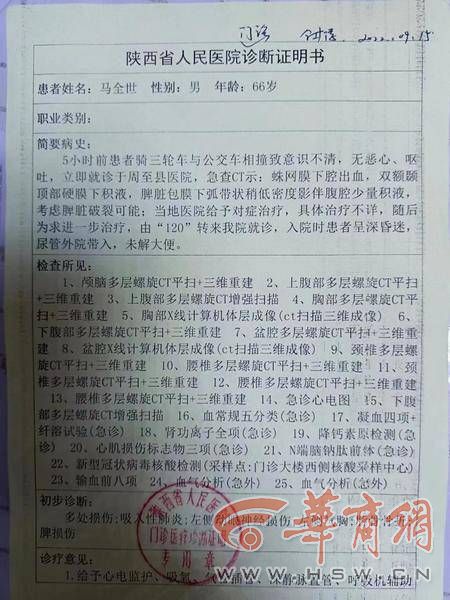 门诊 2022.09.15
陕西省人民医院诊断证明书
患者姓名: 马全世 性别: 男 年龄: 66岁
职业类别:
简要病史:
5小时前患者骑三轮车与公交车相撞致意识不清,无恶心、呕
吐,立即就诊于周至县医院,急查CT示:蛛网膜下腔出血,双额颞
顶部硬膜下积液,脾脏包膜下弧带状稍低密度影伴腹腔少量积液,
考虑脾脏破裂可能;当地医院给予对症治疗,具体治疗不详,随后
为求进一步治疗,由“120”转来我院就诊,入院时患者呈深昏迷,
尿管外院带入,未解大便。
检查所见:
1、颅脑多层螺旋CT平扫+三维重建 2、上腹部多层螺旋CT平
扫+三维重建 3、上腹部多层螺旋CT增强扫描 4、胸部多层螺旋CT
平扫+三维重建 5、胸部X线计算机体层成像(ct扫描三维成像) 6、
下腹部多层螺旋CT平扫+三维重建 7、盆腔多层螺旋CT平扫+三维重
建 8、盆腔X线计算机体层成像(ct扫描三维成像) 9、颈椎多层螺
旋CT平扫+三维重建 10、腰椎多层螺旋CT平扫+三维重建 11、颈
椎多层螺旋CT平扫+三维重建 12、腰椎多层螺旋CT平扫+三维重建
13、腰椎多层螺旋CT平扫+三维重建 14、急诊心电图 15、下腹
部多层螺旋CT增强扫描 16、血常规五分类(急诊) 17、凝血四项+
纤溶试验(急诊) 18、肾功离子全项(急诊) 19、降钙素原检测(急
诊) 20、心肌损伤标志物三项(急诊) 21、N端脑钠肽前体(急诊)
22、新型冠状病毒核酸检测(采样点:门诊大楼西侧核酸采样中心)
23、输血前八项 24、血气分析(急外) 25、血气分析(急外)
初步诊断:
多处损伤;吸入性肺炎;左侧动眼神经损伤;左侧气胸;
脾损伤
诊疗意见:
1.给予心电监护、吸氧、气 插 、深静脉置管、呼吸机辅助
陕西省人民医院
门诊医疗诊断证明
专用章
华商网
WWW.HSW.CN